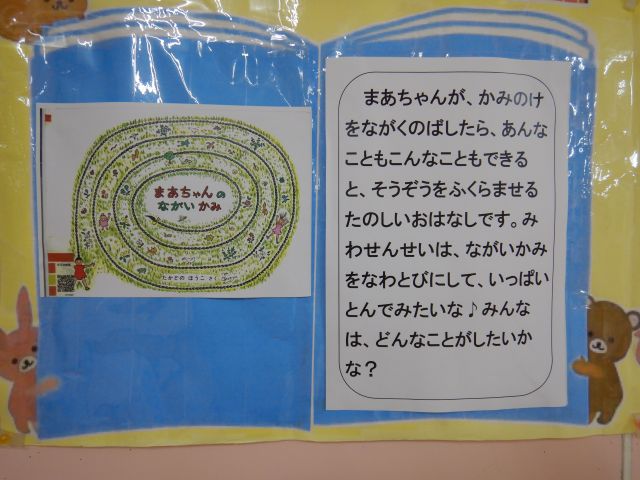 まあちゃんの
ながいかみ
たかどの ほうこ さく
まあちゃんが、かみのけ
をながくのばしたら、あんな
こともこんなこともできる
と、そうぞうをふくらませる
たのしいおはなしです。み
わせんせいは、ながいかみ
をなわとびにして、いっぱい
とんでみたいな♪みんな
は、どんなことがしたいか
な？